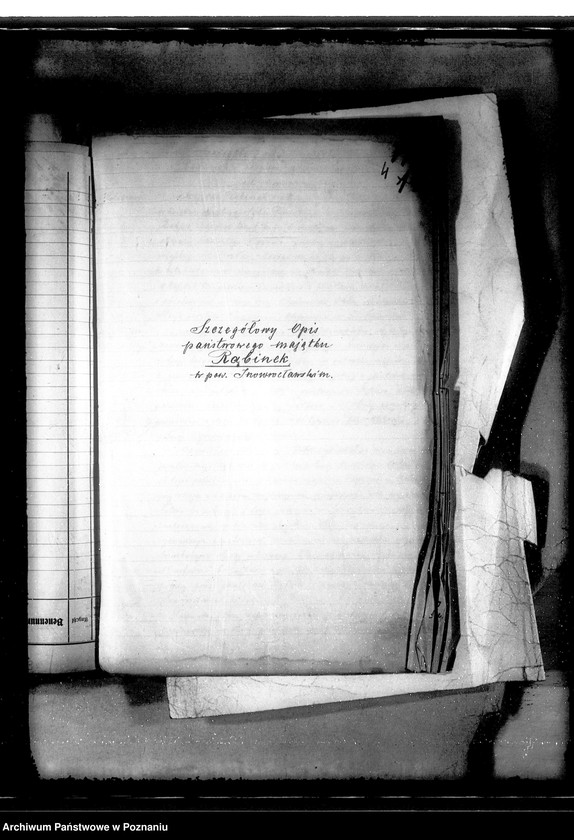 4
Szczegółowy Opis
państwowego majątku
Rąbinek
w pow. Inowrocławskim.
Benennun
Archiwum Państwowe w Poznaniu